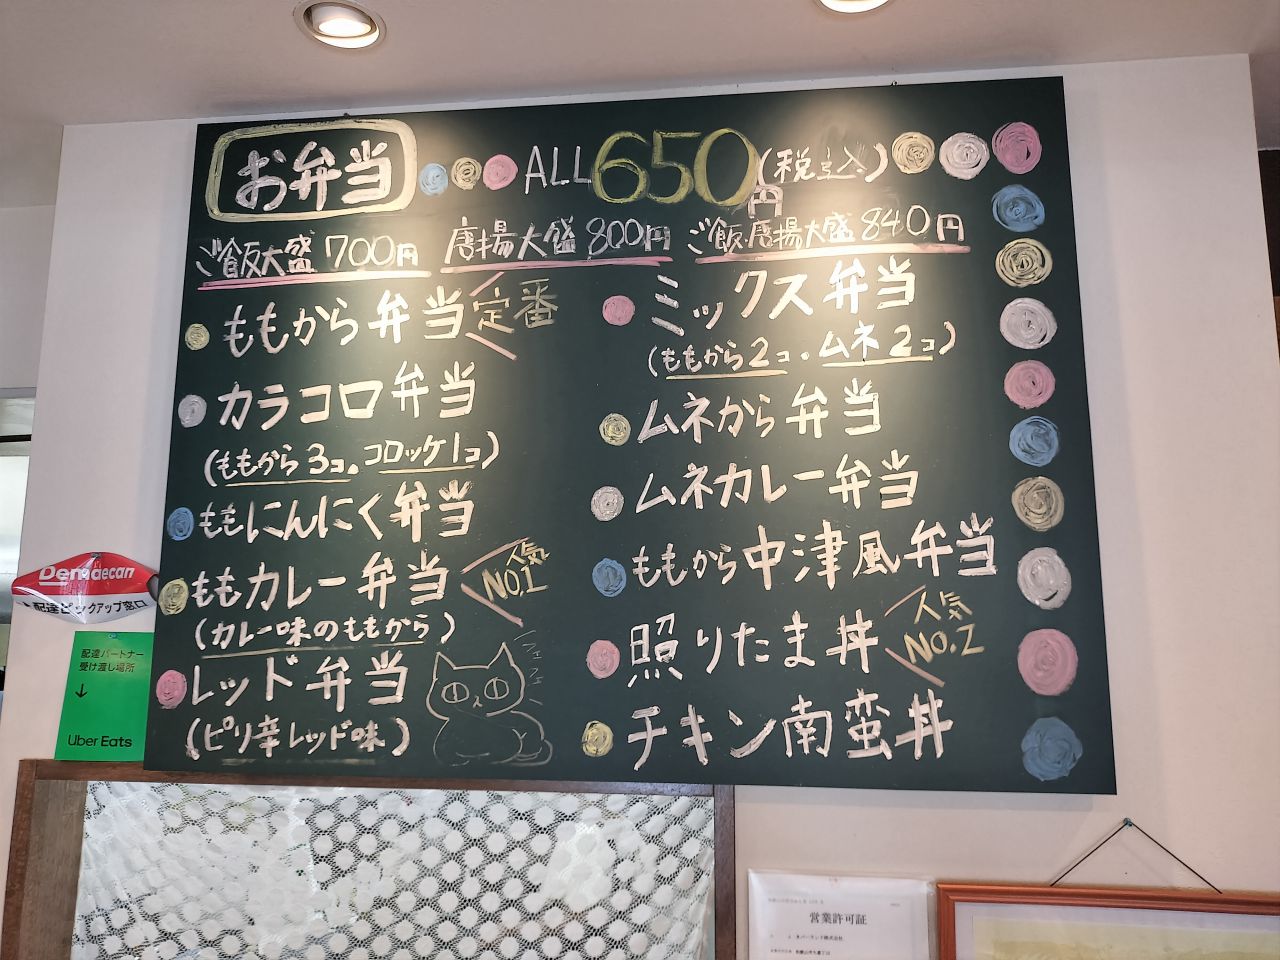 お弁当 ALL 650円(税込)
ご飯大盛 700円 唐揚大盛 800円 ご飯・唐揚大盛 840円
ももから弁当 定番
カラコロ弁当
(ももから3コ。コロッケ1コ)
ももにんにく弁当
ももカレー弁当 人気 NO.1
(カレー味のももから)
レッド弁当
(ピリ辛レッド味)
ミックス弁当
(ももから2コ・ムネ2コ)
ムネから弁当
ムネカレー弁当
ももから中津風弁当
照りたま丼 人気 NO.2
チキン南蛮丼
Demaecan
配達ピックアップ窓口
配達パートナー
受け渡し場所
↓
Uber Eats
営業許可証